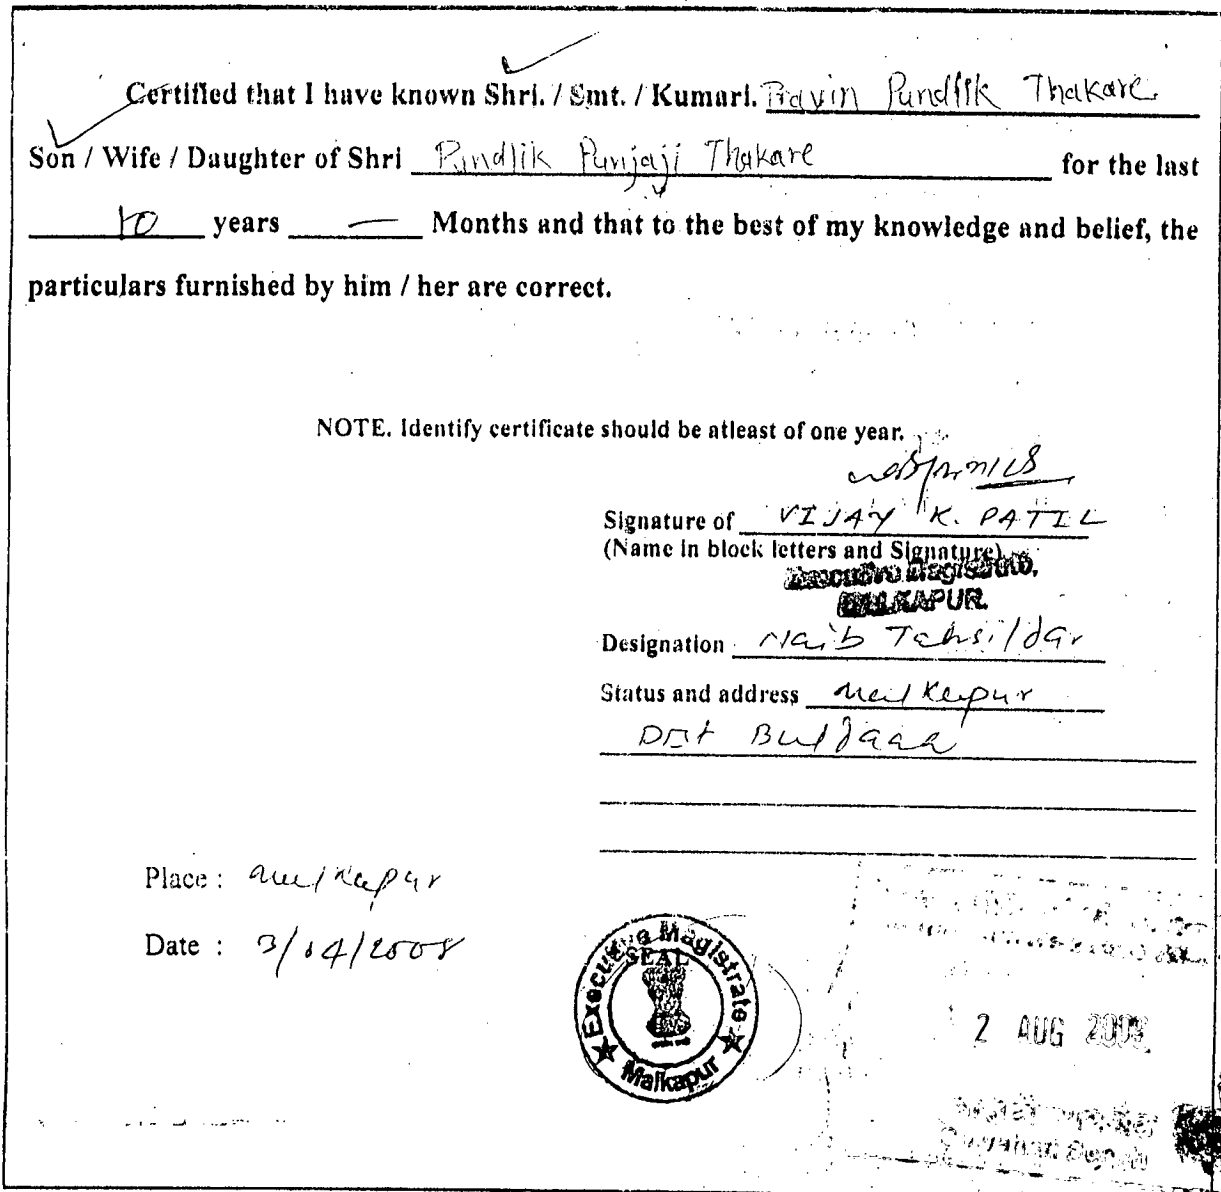 Certified that I have known Shri. / Smt. / Kumari. Pravin Pundlik Thakare
Son / Wife / Daughter of Shri Pundlik Punjaji Thakare for the last
10 years — Months and that to the best of my knowledge and belief, the
particulars furnished by him / her are correct.
NOTE. Identify certificate should be atleast of one year.
Signature of VIJAY K. PATIL
(Name in block letters and Signature)
Executive Magistrate,
MALKAPUR.
Designation Naib Tahsildar
Status and address Malkapur
Dist Buldana
Place : Malkapur
Date : 3/04/2008
Executive Magistrate
SEAL
Malkapur
2 AUG